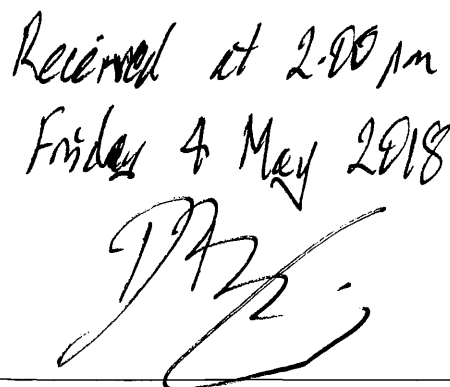 Received at 2.00 pm
Friday 4 May 2018